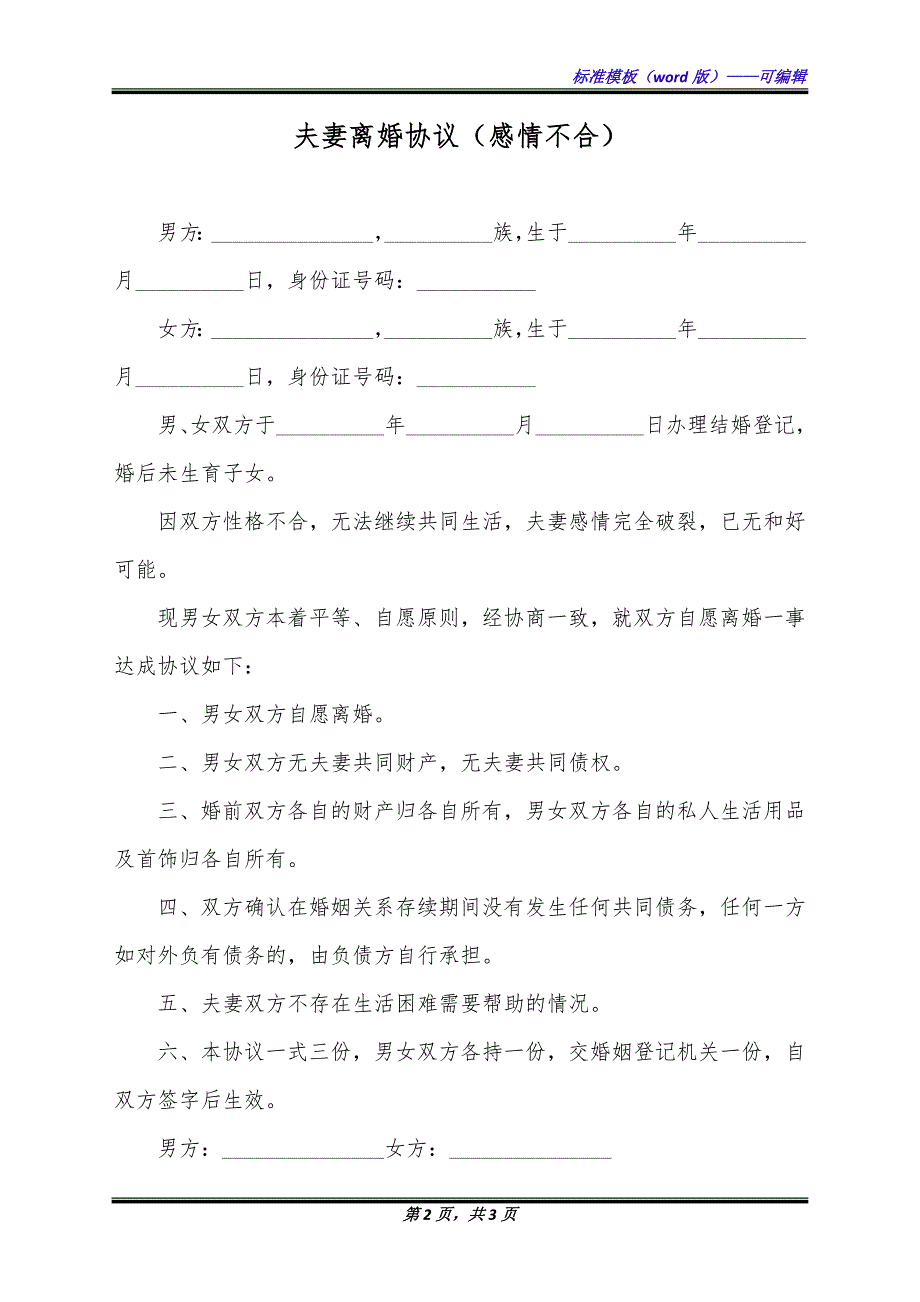 标准模板（word 版）——可编辑
夫妻离婚协议（感情不合）
男方：_______________，__________族，生于__________年__________
月__________日，身份证号码：___________
女方：_______________，__________族，生于__________年__________
月__________日，身份证号码：___________
男、女双方于__________年__________月__________日办理结婚登记，
婚后未生育子女。
因双方性格不合，无法继续共同生活，夫妻感情完全破裂，已无和好
可能。
现男女双方本着平等、自愿原则，经协商一致，就双方自愿离婚一事
达成协议如下：
一、男女双方自愿离婚。
二、男女双方无夫妻共同财产，无夫妻共同债权。
三、婚前双方各自的财产归各自所有，男女双方各自的私人生活用品
及首饰归各自所有。
四、双方确认在婚姻关系存续期间没有发生任何共同债务，任何一方
如对外负有债务的，由负债方自行承担。
五、夫妻双方不存在生活困难需要帮助的情况。
六、本协议一式三份，男女双方各持一份，交婚姻登记机关一份，自
双方签字后生效。
男方：_______________女方：_______________
第 2 页，共 3 页